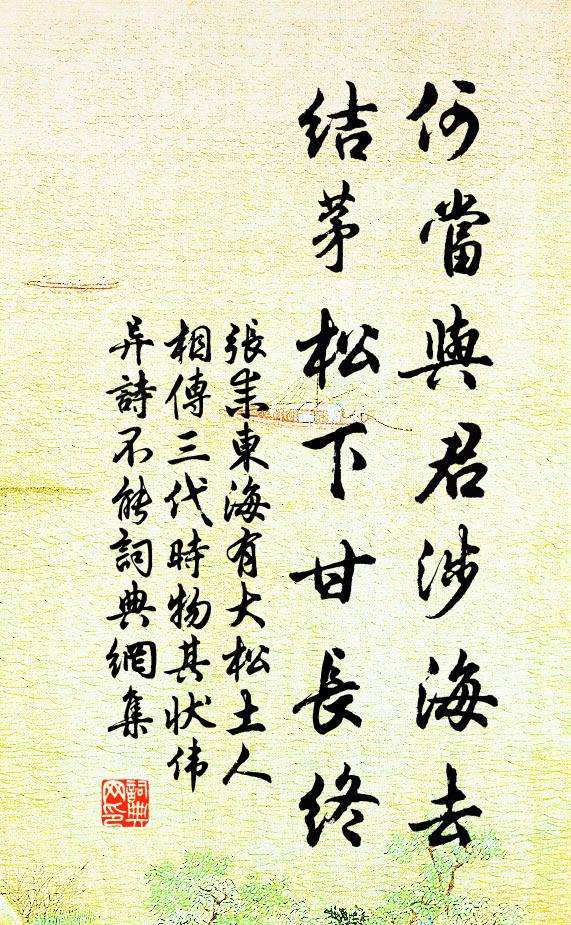 何當與君涉海去
結茅松下甘長終
張耒東海有大松土人
相傳三代時物其狀伟
异詩不能詞典網集
詞典网印